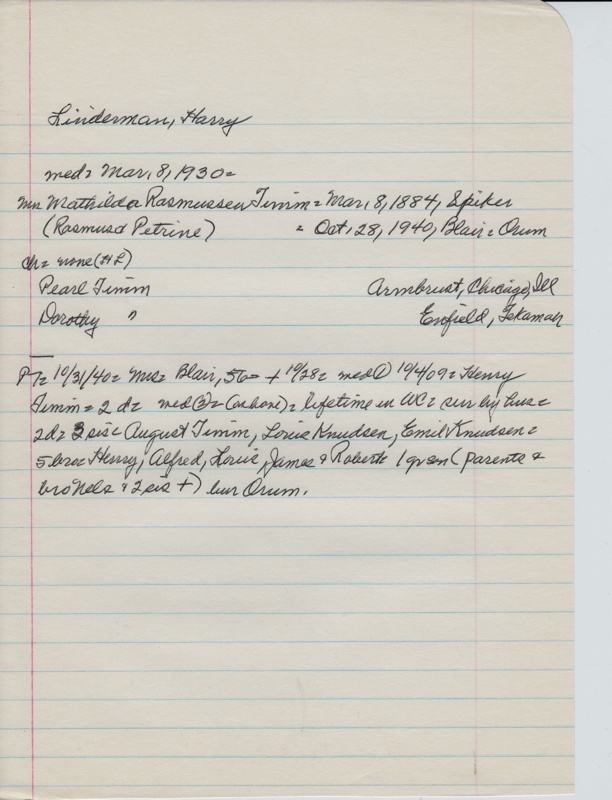 Linderman, Harry
med= Mar, 8, 1930=
Mrs Mathilda Rasmussen Timm= Mar, 8, 1884, Spiker
(Rasmus & Petrine) = Oct, 28, 1940, Blair= Orum
ch= none (HL)
Pearl Timm Armbrust, Chicago, Ill
Dorothy " Enfield, Tekamah
PT= 10/31/40= Mrs= Blair, 56= + 10/28= med① 10/4/09= Henry
Timm= 2 d= med (3)= (as above)= lifetime in WC= sur by hus=
2d= 3 sis= August Timm, Louis Knudsen, Emil Knudsen=
5 bro= Henry, Alfred, Louis, James & Robert= 1 grson (parents &
bro Nels & 2 sis +) bur Orum.